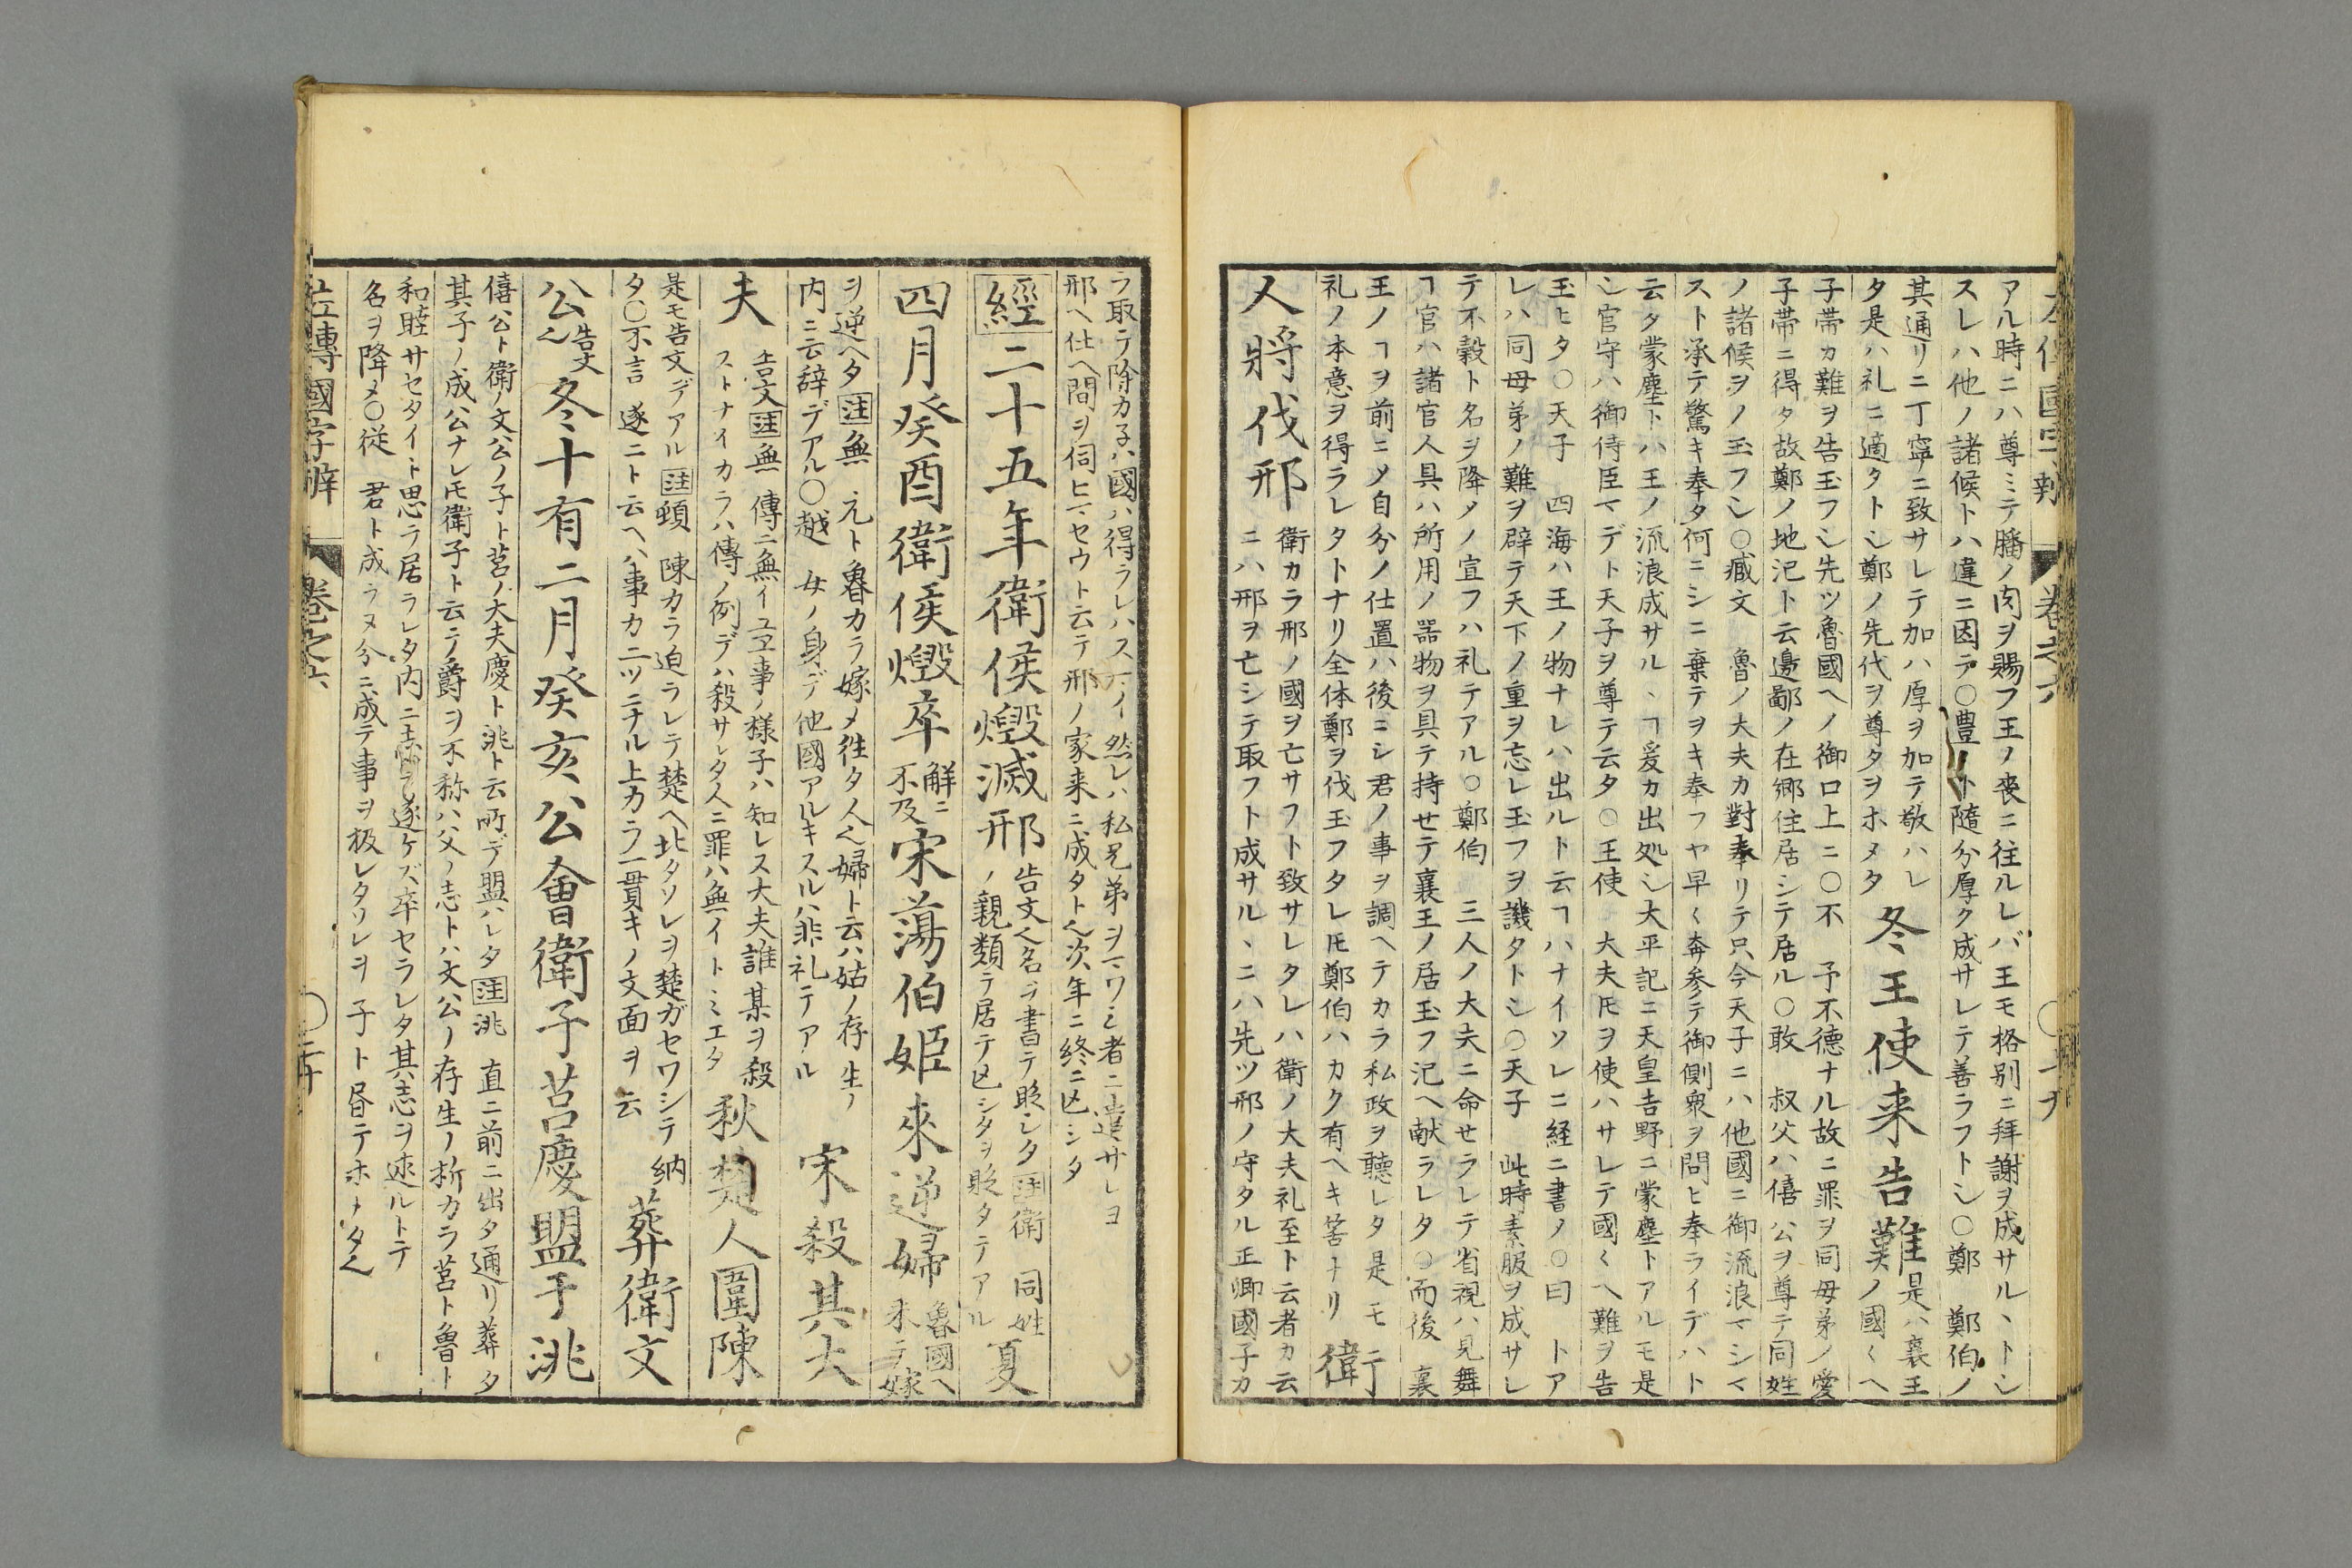 左傳國字辨 卷之六
アル時ニハ尊ミテ膰ノ肉ヲ賜フ王ノ喪ニ往ルレバ王モ格別ニ拜謝ヲ成サル丶トシ
スレハ他ノ諸候トハ違ニ因テ〇豊 ト隨分厚ク成サレテ善ラフトシ〇鄭 鄭伯ノ
其通リニ丁寧ニ致サレテ加ハ厚ヲ加テ敬ハレ
タ是ハ礼ニ適タトシ鄭ノ先代ヲ尊タヲホメタ
冬王使来告難
是ハ襄王
ノ國〱ヘ
子帯カ難ヲ告玉フシ先ツ魯國ヘノ御口上ニ〇不 予不德ナル故ニ罪ヲ同母弟ノ愛
子帯ニ得タ故鄭ノ地汜ト云邊鄙ノ在郷住居シテ居ル〇敢 叔父ハ僖公ヲ尊テ同姓
ノ諸候ヲノ玉フシ〇臧文 魯ノ大夫カ對奉リテ只今天子ニハ他國ニ御流浪マシマ
スト承テ驚キ奉タ何ニシニ棄テヲキ奉フヤ早く奔参テ御側衆ヲ問ヒ奉ライデハト
云タ蒙塵トハ王ノ流浪成サル丶ヿ爰カ出処シ大平記ニ天皇吉野ニ蒙塵トアルモ是
シ官守ハ御侍臣マデト天子ヲ尊テ云タ〇王使 大夫𪜈ヲ使ハサレテ國〱ヘ難ヲ告
玉ヒタ〇天子 四海ハ王ノ物ナレハ出ルト云ヿハナイソレニ経ニ書ノ〇曰 トア
レハ同母弟ノ難ヲ辟テ天下ノ重ヲ忘レ玉フヲ譏タトシ〇天子 此時素服ヲ成サレ
テ不穀ト名ヲ降メノ宜フハ礼テアル〇鄭伯 三人ノ大夫ニ命セラレテ省視ハ見舞
ヿ官ハ諸官人具ハ所用ノ器物ヲ具テ持セテ襄王ノ居玉フ汜ヘ献ラレタ〇而後 襄
王ノヿヲ前ニメ自分ノ仕置ハ後ニシ君ノ事ヲ調ヘテカラ私政ヲ聽レタ是モ
礼ノ本意ヲ得ラレタトナリ全体鄭ヲ伐玉フタレ𪜈鄭伯ハカク有ヘキ筈ナリ
衛
人將伐邢
衛カラ邢ノ國ヲ亡サフト致サレタレハ衛ノ大夫礼至ト云者カ云
ニハ邢ヲ亡シテ取フト成サル丶ニハ先ツ邢ノ守タル正卿國子カ
ラ取テ除カネハ國ハ得ラレハスマイ然レハ私兄弟ヲマワシ者ニ遣サレヨ
邢ヘ仕ヘ間ヲ伺ヒマセウト云テ邢ノ家来ニ成タト〱次年ニ終ニ亡シタ
經二十五年衛侯燬滅邢
告文〱名ヲ書テ貶シタ注衛 同姓
ノ親類テ居テ亡シタヲ貶タテアル
夏
四月癸酉衛侯燬卒
解ニ
不及
宋蕩伯姬來逆婦
魯國ヘ
来テ嫁
ヲ逆ヘタ注無 元ト魯カラ嫁メ往タ人〱婦ト云ハ姑ノ存生ノ
内ニ云辞デアル〇越 女ノ身デ他國アルキスルハ非礼テアル
宋殺其大
夫
告文注無 傳ニ無イユヱ事ノ様子ハ知レス大夫誰某ヲ殺
ストナイカラハ傳ノ例デハ殺サレタ人ニ罪ハ無イトミエタ
秋楚人圍陳
是モ告文デアル注頓 陳カラ迫ラレテ楚ヘ北タソレヲ楚ガセワシテ納
タ〇不言 遂ニト云ヘハ事カ二ツニナル上カラ一貫キノ文面ヲ云
葬衛文
公
告文
〱
冬十有二月癸亥公會衛子莒慶盟于洮
僖公ト衛ノ文公ノ子ト莒ノ大夫慶ト洮ト云所デ盟ハレタ注洮 直ニ前ニ出タ通リ葬タ
其子ノ成公ナレ𪜈衛子ト云テ爵ヲ不称ハ父ノ志トハ文公ノ存生ノ折カラ莒ト魯ト
和睦サセタイト思テ居ラレタ内ニ志 遂ケズ卒セラレタ其志ヲ述ルトテ
名ヲ降メ〇從 君ト成ラヌ分ニ成テ事ヲ扱レタソレヲ子ト昏テホメタ〱
左傳國字辨 卷之六 〇二十